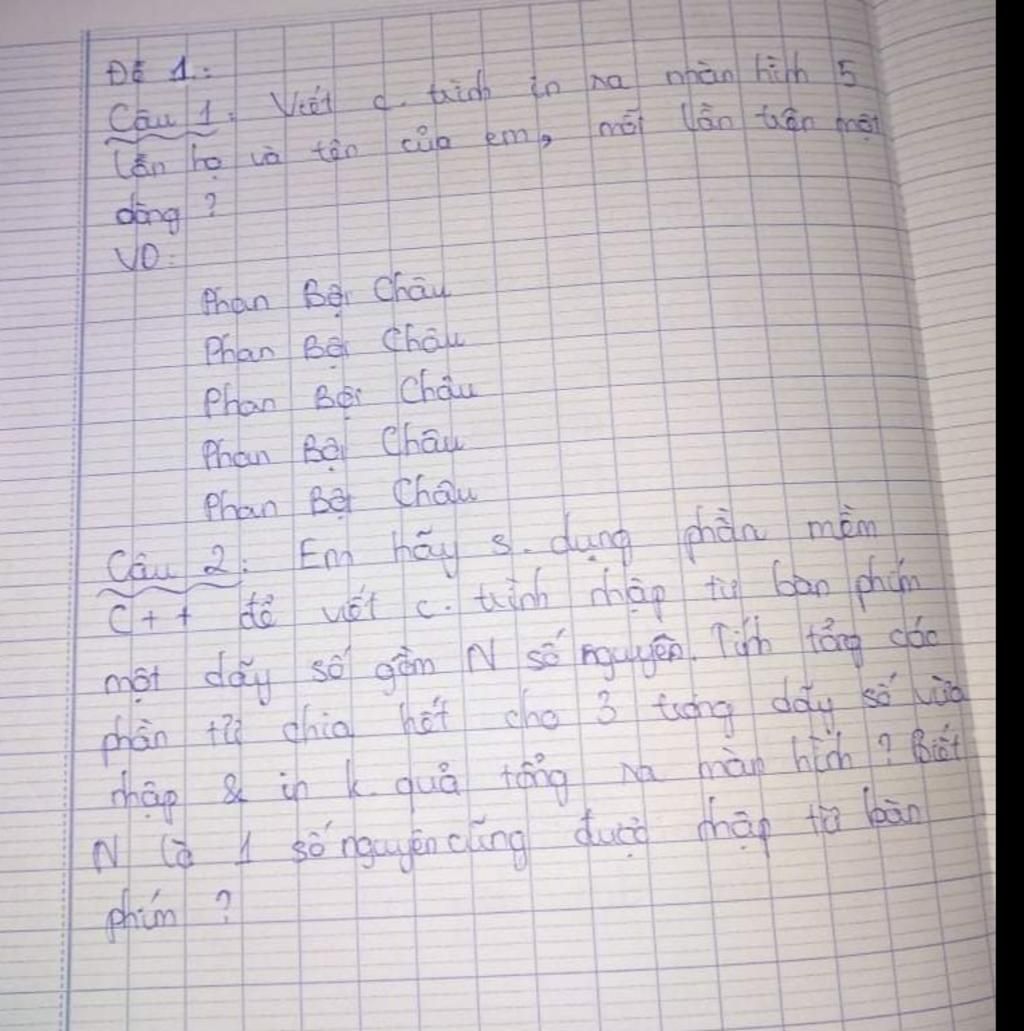 Đề 1:
Câu 1: Viết c. trình in ra màn hình 5
lần họ và tên của em, mỗi lần trên một
dòng ?
VD:
Phan Bội Châu
Phan Bội Châu
Phan Bội Châu
Phan Bội Châu
Phan Bội Châu
Câu 2: Em hãy s. dụng phần mềm
C++ để viết c. trình nhập từ bàn phím
một dãy số gồm N số nguyên. Tính tổng các
phần tử chia hết cho 3 trong dãy số vừa
nhập & in k. quả tổng ra màn hình ? Biết
N là 1 số nguyên cũng được nhập từ bàn
phím ?